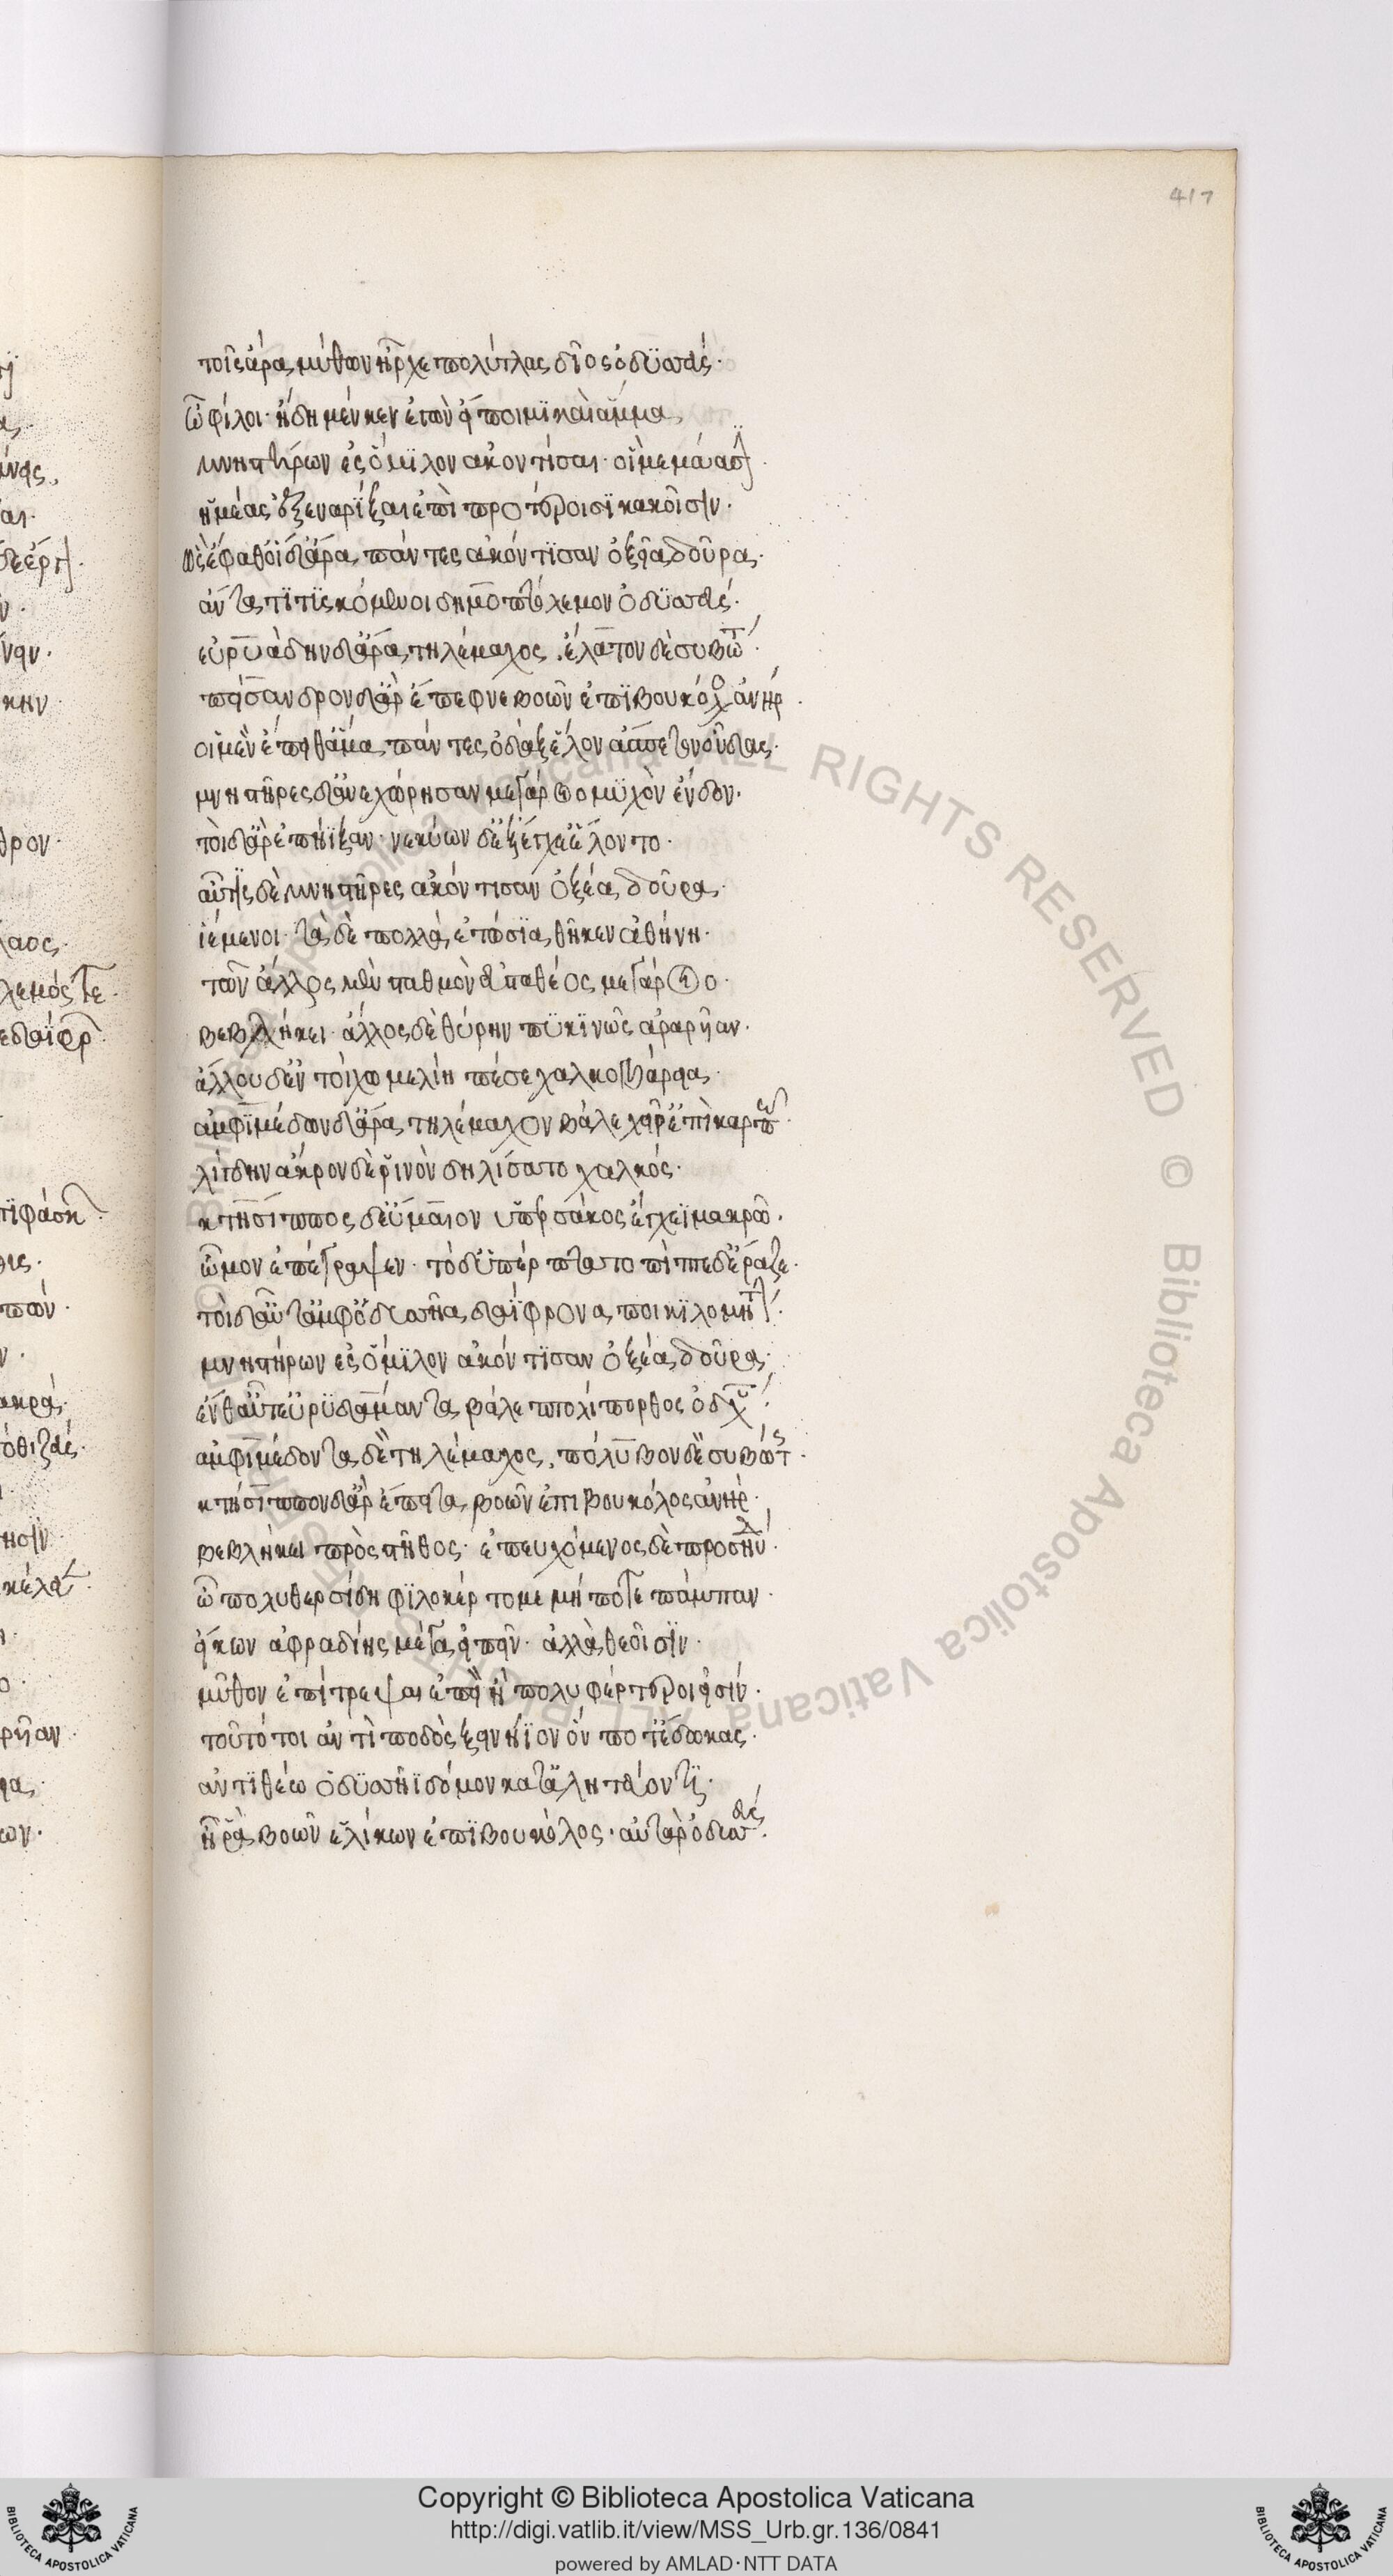 417
τοῖς ἄρα μύθων ἦρχε πολύτλας δῖος ὀδϋσσεύς·
ὦ φίλοι· ἤδη μέν κεν ἐγὼν εἴποιμϊ καὶ ἄμμα
μνηστήρων ἐς ὅμϊλον ἀκοντίσαι· οἳ μεμάασϊν·
ἡμέας ἐξεναρίξαι ἐπὶ προτέροισϊ κακοῖσϊν·
ὣς ἔφαθ' οἱ δ' ἄρα πάντες ἀκόντϊσαν ὀξεῖα δοῦρα·
ἄντα τϊτϊσκόμενοι δημοπτόλεμον ὀδϋσσεύς·
εὐρυάδην δ' ἄρα τηλέμαχος· ἔλατον δὲ συβώτ
πείσανδρον δ' ἂρ ἔπεφνε βοῶν ἐπϊβουκόλος ἀνήρ·
οἱ μὲν ἔπειθ' ἅμα πάντες ὀδὰξ ἕλον ἄσπετον οὖδας·
μνηστῆρες δ' ἀνεχώρησαν μεγάροιο μϋχὸν ἔνδον·
τοὶ δ' ἂρ ἐπήϊξαν· νεκύων δ' ἐξ ἔγχε' ἕλοντο·
αὖτις δὲ μνηστῆρες ἀκόντισαν ὀξέα δοῦρα·
ἱέμενοι· τὰ δὲ πολλὰ ἐτώσϊα θῆκεν ἀθήνη·
τῶν ἄλλος μὲν σταθμὸν ἐϋσταθέος μεγάροιο·
βεβλήκει· ἄλλος δὲ θύρην πϋκϊνῶς ἀραρῆαν·
ἄλλου δ' ἐν τοίχω μελίη πέσε χαλκοβάρεια·
ἀμφϊμέδων δ' ἄρα τηλέμαχον βάλε χεῖρ' ἐπὶ καρπῶ
λίγδην ἄκρον δὲ ῥινὸν δηλίσατο χαλκός·
κτήσιππος δ' εὔμαιον ὑπὲρ σάκος ἔγχεϊ μακρῶ·
ὦμον ἐπέγραψεν· τὸ δ' ὑπέρπτατο πίπτε δ' ἔραζε·
τοὶ δ' αὖτ' ἀμφ' ὀδυσῆα δαΐφρονα ποικϊλομήτην·
μνηστήρων ἐς ὅμϊλον ἀκόντϊσαν ὀξέα δοῦρα·
ἔνθ' αὖτ' εὐρϋδάμαντα βάλε πτολίπορθος ὀδϋ
ἀμφϊμέδοντα δὲ τηλέμαχος· πόλυβον δὲ συβώτ
κτήσιππον δ' ἂρ ἔπειτα βοῶν ἐπιβουκόλος ἀνὴρ·
βεβλήκει πρὸς στῆθος· ἐπευχόμενος δὲ προσηύ
ὦ πολυθερσίδη φϊλοκέρτομε μή ποτε πάμπαν·
εἴκων ἀφραδίης μέγα εἰπεῖν· ἀλλὰ θεοῖσϊν·
μῦθον ἐπίτρεψαι ἐπειὴ πολυφέρτεροι εἰσίν·
τοῦτό τοι ἀντὶ ποδὸς ξεινήϊον ὅν ποτ' ἔδωκας·
ἀντϊθέω ὀδϋσῆϊ δόμον κατ' ἀλητεύοντϊ·
ἦ ῥα βοῶν ἑλίκων ἐπϊβουκόλος· αὐτὰρ ὀδυσσεύς·
Copyright © Biblioteca Apostolica Vaticana
http://digi.vatlib.it/view/MSS_Urb.gr.136/0841
powered by AMLAD·NTT DATA